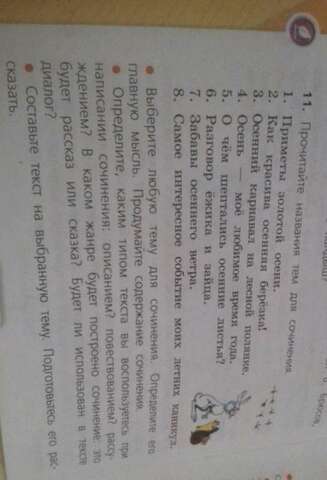 11. Прочитайте названия тем для сочинения.
1. Приметы золотой осени.
2. Как красива осенняя берёзка!
3. Осенний карнавал на лесной полянке.
4. Осень — моё любимое время года.
5. О чём шептались осенние листья?
6. Разговор ёжика и зайца.
7. Забавы осеннего ветра.
8. Самое интересное событие моих летних каникул.
● Выберите любую тему для сочинения. Определите его
главную мысль. Продумайте содержание сочинения.
● Определите, каким типом текста вы воспользуетесь при
написании сочинения: описанием? повествованием? рассу-
ждением? В каком жанре будет построено сочинение: это
будет рассказ или сказка? Будет ли использован в тексте
диалог?
● Составьте текст на выбранную тему. Подготовьтесь его рас-
сказать.